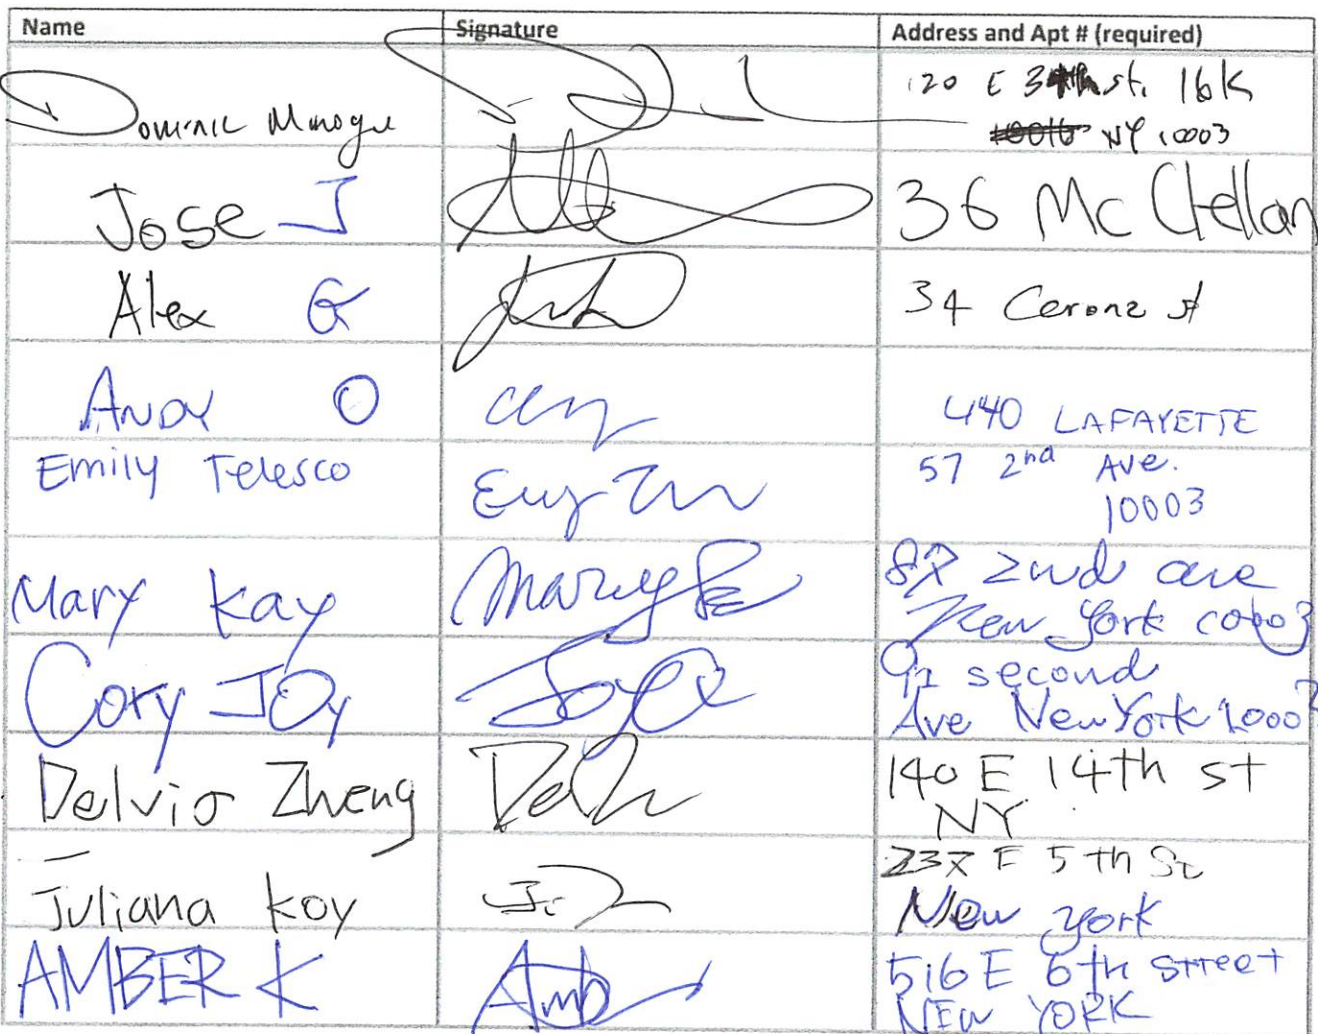 Name Signature Address and Apt # (required)
Dominic 120 E st. 16K
NY 10003
Jose J 36 McClellan
Alex G 34 st
ANDY O 440 LAFAYETTE
Emily Telesco 57 2nd Ave.
10003
Mary Kay Mary 87 2nd ave
New York 10003
Cory JOy 91 second
Ave New York 10003
Delvio Zheng 140 E 14th st
NY
Juliana Koy 237 E 5th St
New york
AMBER K Amb 516 E 6th street
NEW YORK